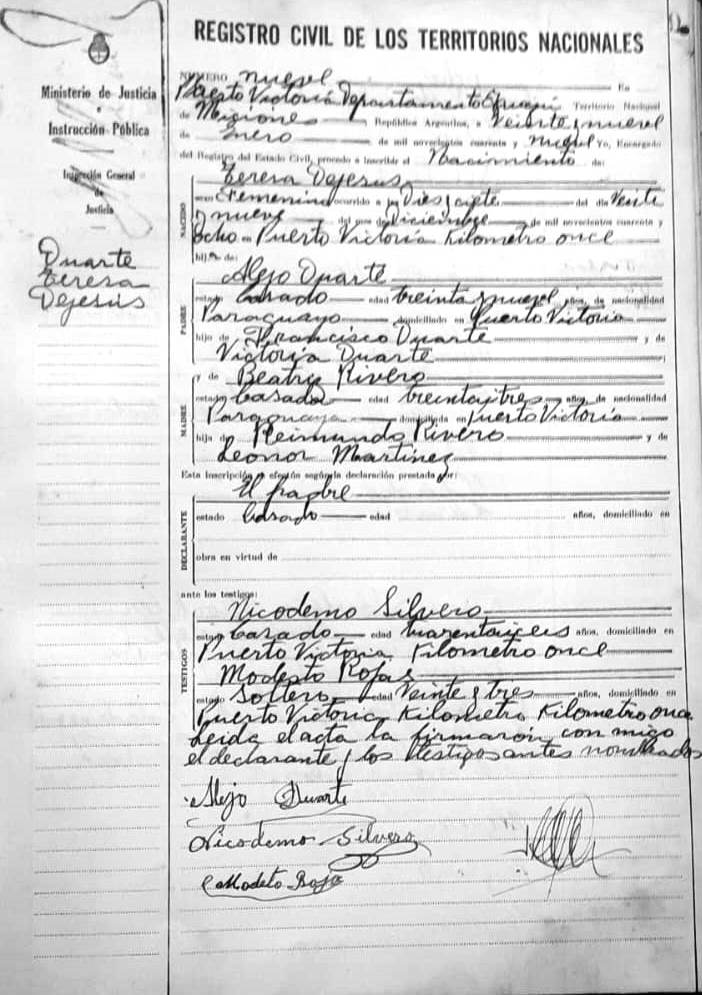 REGISTRO CIVIL DE LOS TERRITORIOS NACIONALES
Ministerio de Justicia
e
Instrucción Pública
Inspección General
de
Justicia
Duarte
Teresa
Dejesús
NÚMERO nueve En
Puerto Victoria Departamento Territorio Nacional
de Misiones República Argentina, a Veinte y nueve
de Enero de mil novecientos cuarenta y nueve Yo, Encargado
del Registro del Estado Civil, procedo a inscribir el Nacimiento de:
Teresa Dejesús
NACIDO
sexo Femenino ocurrido a las Dies y ciete del día Veinte
y nueve del mes de Diciembre de mil novecientos cuarenta y
Ocho en Puerto Victoria Kilometro once
hija de:
PADRE
Alejo Duarte
estado Casado edad treinta y nueve años, de nacionalidad
Paraguayo domiciliado en Puerto Victoria
hijo de Francisco Duarte y de
Victoria Duarte
MADRE
y de Beatriz Rivero
estado casada edad treinta y tres años, de nacionalidad
Paraguaya domiciliada en Puerto Victoria
hija de Reimundo Rivero y de
Leonor Martinez
Esta inscripción se efectúa según la declaración prestada por:
DECLARANTE
El padre
estado Casado edad años, domiciliado en
obra en virtud de
ante los testigos:
TESTIGOS
Nicodemo Silvero
estado Casado edad años, domiciliado en
Puerto Victoria Kilometro once
Modesto Rojas
estado Soltero edad Veinte y tres años, domiciliado en
Puerto Victoria Kilometro Kilometro once
Leida el acta la firmaron con migo
el declarante y los testigos antes nombrados
Alejo Duarte
Nicodemo Silvero
Modeto Roja